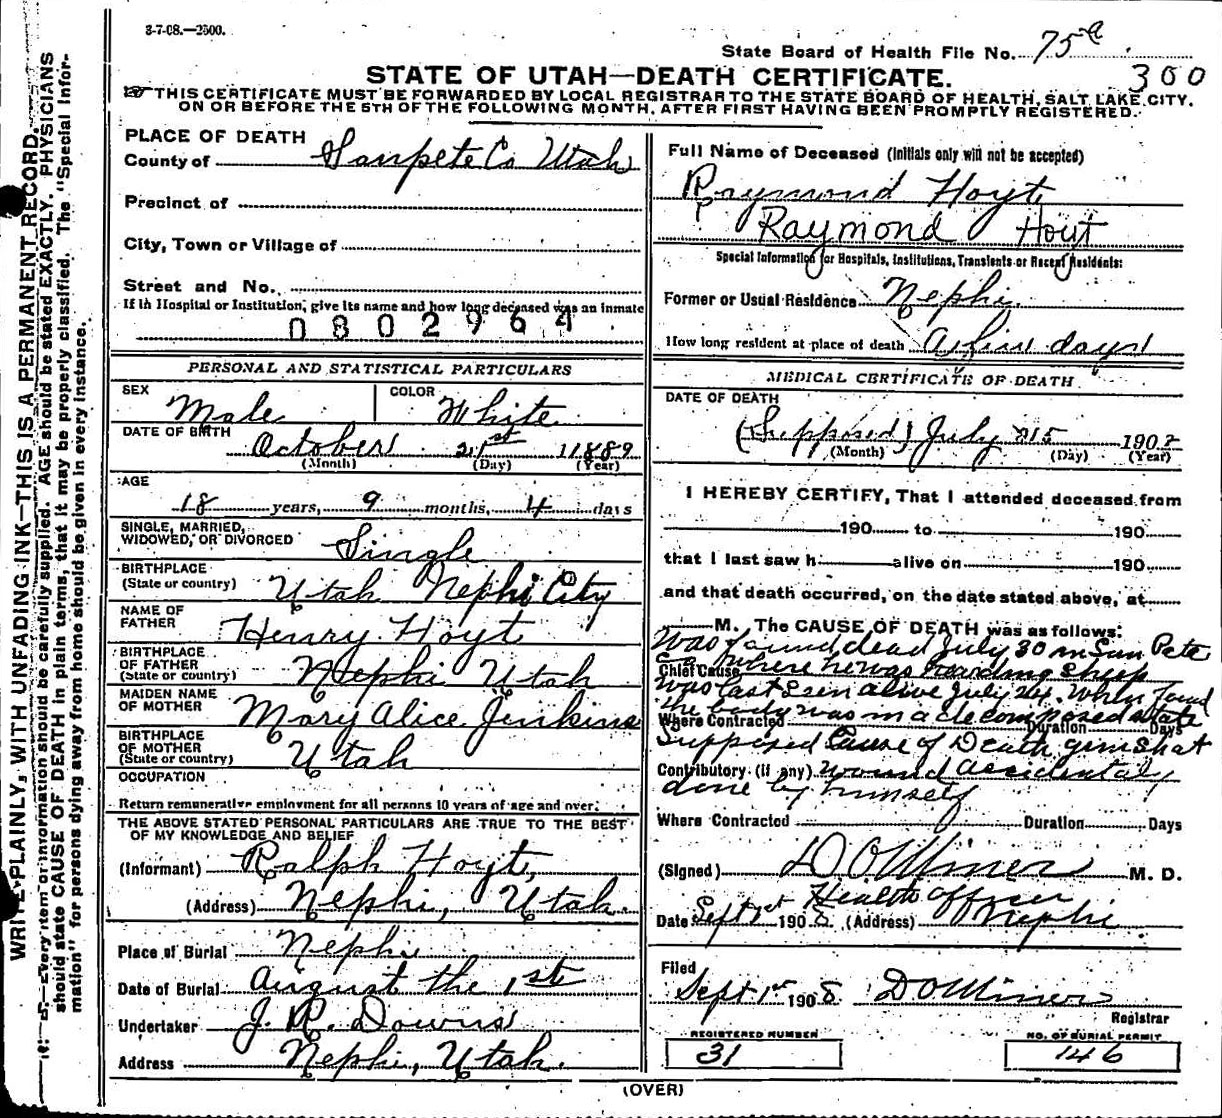 3-7-08.—2500.
State Board of Health File No. 75a
300
STATE OF UTAH—DEATH CERTIFICATE.
THIS CERTIFICATE MUST BE FORWARDED BY LOCAL REGISTRAR TO THE STATE BOARD OF HEALTH, SALT LAKE CITY,
ON OR BEFORE THE 5TH OF THE FOLLOWING MONTH, AFTER FIRST HAVING BEEN PROMPTLY REGISTERED.
WRITE PLAINLY, WITH UNFADING INK—THIS IS A PERMANENT RECORD.
Every item of information should be carefully supplied. AGE should be stated EXACTLY. PHYSICIANS
should state CAUSE OF DEATH in plain terms, that it may be properly classified. The "Special Infor-
mation" for persons dying away from home should be given in every instance.
PLACE OF DEATH
County of Sanpete Co Utah
Precinct of
City, Town or Village of
Street and No.
If in Hospital or Institution, give its name and how long deceased was an inmate
0802964
PERSONAL AND STATISTICAL PARTICULARS
SEX Male
COLOR White
DATE OF BIRTH October 21st 1889
(Month) (Day) (Year)
AGE
18 years, 9 months, 4 days
SINGLE, MARRIED,
WIDOWED, OR DIVORCED Single
BIRTHPLACE
(State or country) Utah Nephi City
NAME OF
FATHER Henry Hoyt
BIRTHPLACE
OF FATHER
(State or country) Nephi Utah
MAIDEN NAME
OF MOTHER Mary Alice Jenkins
BIRTHPLACE
OF MOTHER
(State or country) Utah
OCCUPATION
Return remunerative employment for all persons 10 years of age and over.
THE ABOVE STATED PERSONAL PARTICULARS ARE TRUE TO THE BEST
OF MY KNOWLEDGE AND BELIEF
(Informant) Ralph Hoyt,
(Address) Nephi, Utah.
Place of Burial Nephi
Date of Burial August the 1st
Undertaker J. R. Downs
Address Nephi, Utah.
Full Name of Deceased (Initials only will not be accepted)
Raymond Hoyt
Raymond Hoyt
Special Information for Hospitals, Institutions, Transients or Recent Residents:
Former or Usual Residence Nephi
How long resident at place of death A few days
MEDICAL CERTIFICATE OF DEATH
DATE OF DEATH
(Supposed) July 25 1908
(Month) (Day) (Year)
I HEREBY CERTIFY, That I attended deceased from
190 to 190
that I last saw h alive on 190
and that death occurred, on the date stated above, at
M. The CAUSE OF DEATH was as follows:
was found dead July 30 in San Pete
Co where he was hearding sheep
Chief Cause
was last seen alive July 24. When found
the body was in a decomposed state
Where Contracted Duration Days
Supposed Cause of Death gunshot
Contributory (if any) wound accidentaly
done by himself
Where Contracted Duration Days
(Signed) D O Miner M. D.
Health officer
Date Sept 1st 1908 (Address) Nephi
Filed
Sept 1st 1908 D O Miner
Registrar
REGISTERED NUMBER
31
NO. OF BURIAL PERMIT
146
(OVER)